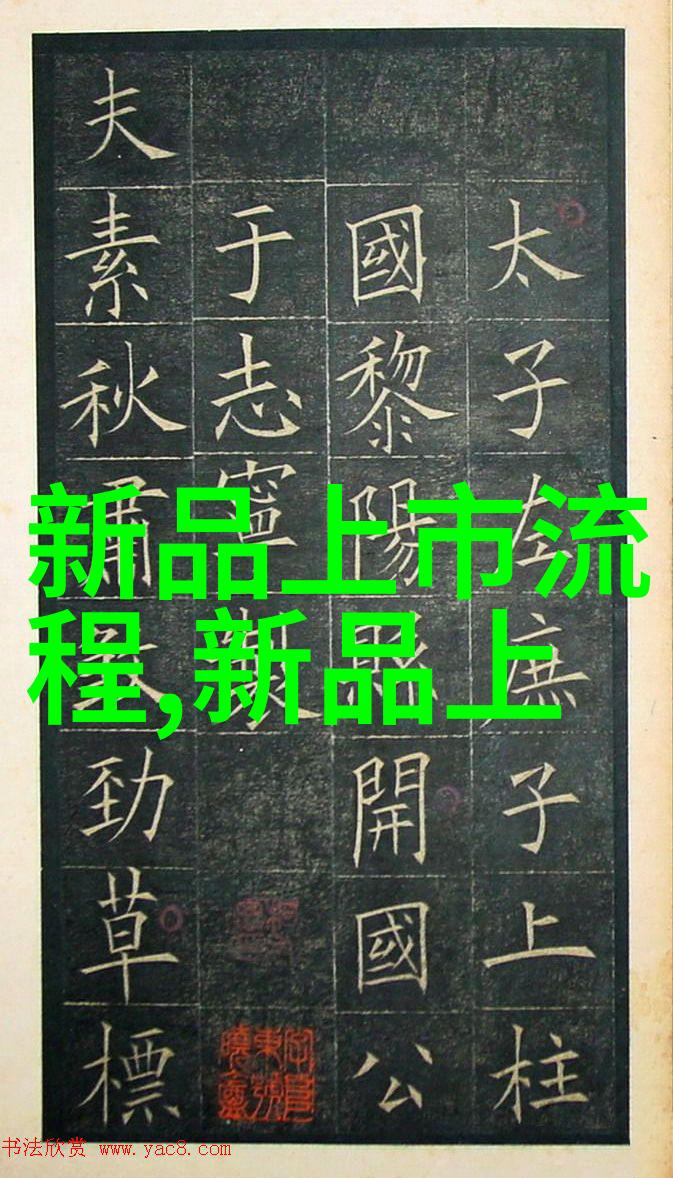 太子左庶子上柱
國黎陽縣開國公
于志寧製
夫素秋肅勁草標
新品上市流
程,新品上
书法欣赏 www.yac8.com